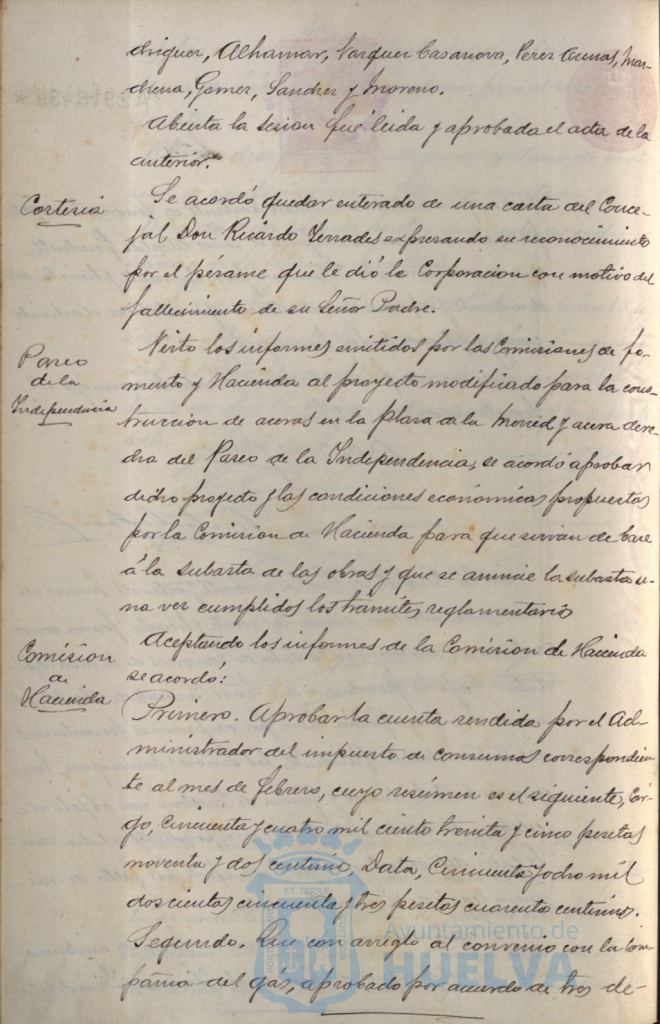 driguez, Alhamar, Vazquez Casanova, Perez Arenas, Mar-
chena, Gomez, Sanchez y Moreno.
Abierta la sesion fué leida y aprobada el acta de la
anterior.
Cortesia
Se acordó quedar enterado de una carta del Conce-
jal Don Ricardo Terrades expresando su reconocimiento
por el pésame que le dió la Corporacion con motivo del
fallecimiento de su Señor Padre.
Paseo
de la
Independencia
Visto los informes emitidos por las Comisiones de fo-
mento y Hacienda al proyecto modificado para la cons-
truccion de aceras en la plaza de la Merced y acera dere-
cha del Paseo de la Independencia, se acordó aprobar
dicho proyecto y las condiciones económicas propuestas
por la Comision de Hacienda para que sirvan de base
á la subasta de las obras y que se anuncie la subasta u-
na vez cumplidos los trámites reglamentarios
Comision
de
Hacienda
Aceptando los informes de la Comision de Hacienda
se acordó:
Primero. Aprobar la cuenta rendida por el Ad-
ministrador del impuesto de consumos correspondien-
te al mes de febrero, cuyo resúmen es el siguiente, Car-
go, Cincuenta y cuatro mil ciento treinta y cinco pesetas
noventa y dos centimos, Data, Cincuenta y ocho mil
doscientas cincuenta y tres pesetas cuarenta centimos.
Segundo. Que con arreglo al convenio con la Com-
pañia del gas, aprobado por acuerdo de tres de-
Ayuntamiento de
HUELVA